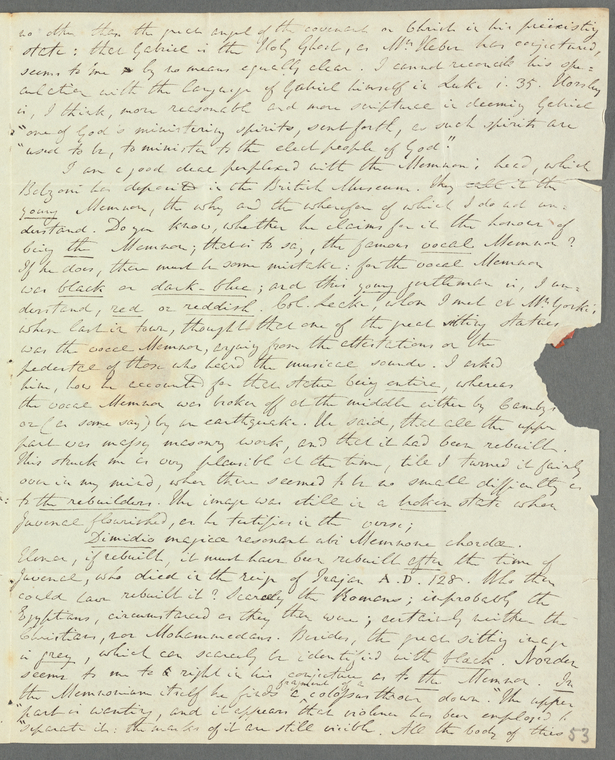 no other than the great angel of the covenant or Christ in his preëxisting
state: that Gabriel is the Holy Ghost, as Mr Heber has conjectured,
seems to me by no means equally clear. I cannot reconcile his spe-
culation with the language of Gabriel himself in Luke 1. 35. Horsley
is, I think, more reasonable and more scriptural in deeming Gabriel
"one of God's ministering spirits, sent forth, as such spirits are
"used to be, to minister to the elect people of God."
I am a good deal perplexed with the Memnon's head, which
Belzoni has deposited in the British Museum. They call it the
young Memnon, the why and the wherefore of which I do not un-
derstand. Do you know, whether he claims for it the honour of
being the Memnon; that is to say, the famous vocal Memnon?
If he does, there must be some mistake: for the vocal Memnon
was black or dark-blue; and this young gentleman is, I un-
derstand, red or reddish. Col. Leake, whom I met at Mr
when last in town, thought that one of the great sitting statues
was the vocal Memnon, arguing from the attestations on the
pedestal of those who heard the musical sounds. I asked
him, how he accounted for that statue being entire, whereas
the vocal Memnon was broken off at the middle either by Cambys
or (as some say) by an earthquake. He said, that all the upper
part was massy masonry work, and that it had been rebuilt.
This struck me as very plausible at the time, till I turned it fairly
over in my mind, when there seemed to be no small difficulty as
to the rebuilders. The image was still in a broken state when
Juvenal flourished, as he testifies in the verse;
Dimidio magicæ resonant ubi Memnone chordæ.
Hence, if rebuilt, it must have been rebuilt after the time of
Juvenal, who died in the reign of Trajan A.D. 128. Who then
could have rebuilt it? Scarcely the Romans; improbably the
Egyptians, circumstanced as they then were; certainly neither the
Christians, nor Mohammedans. Besides, the great sitting image
is grey, which can scarcely be identified with black. Norden
seems to me to be right in his conjecture as to the Memnon. In
the Memnonium itself he finds fragment of a colossus thrown down. "The upper
"part is wanting, and it appears that violence has been employed to
"separate it: the marks of it are still visible. All the body of this
53